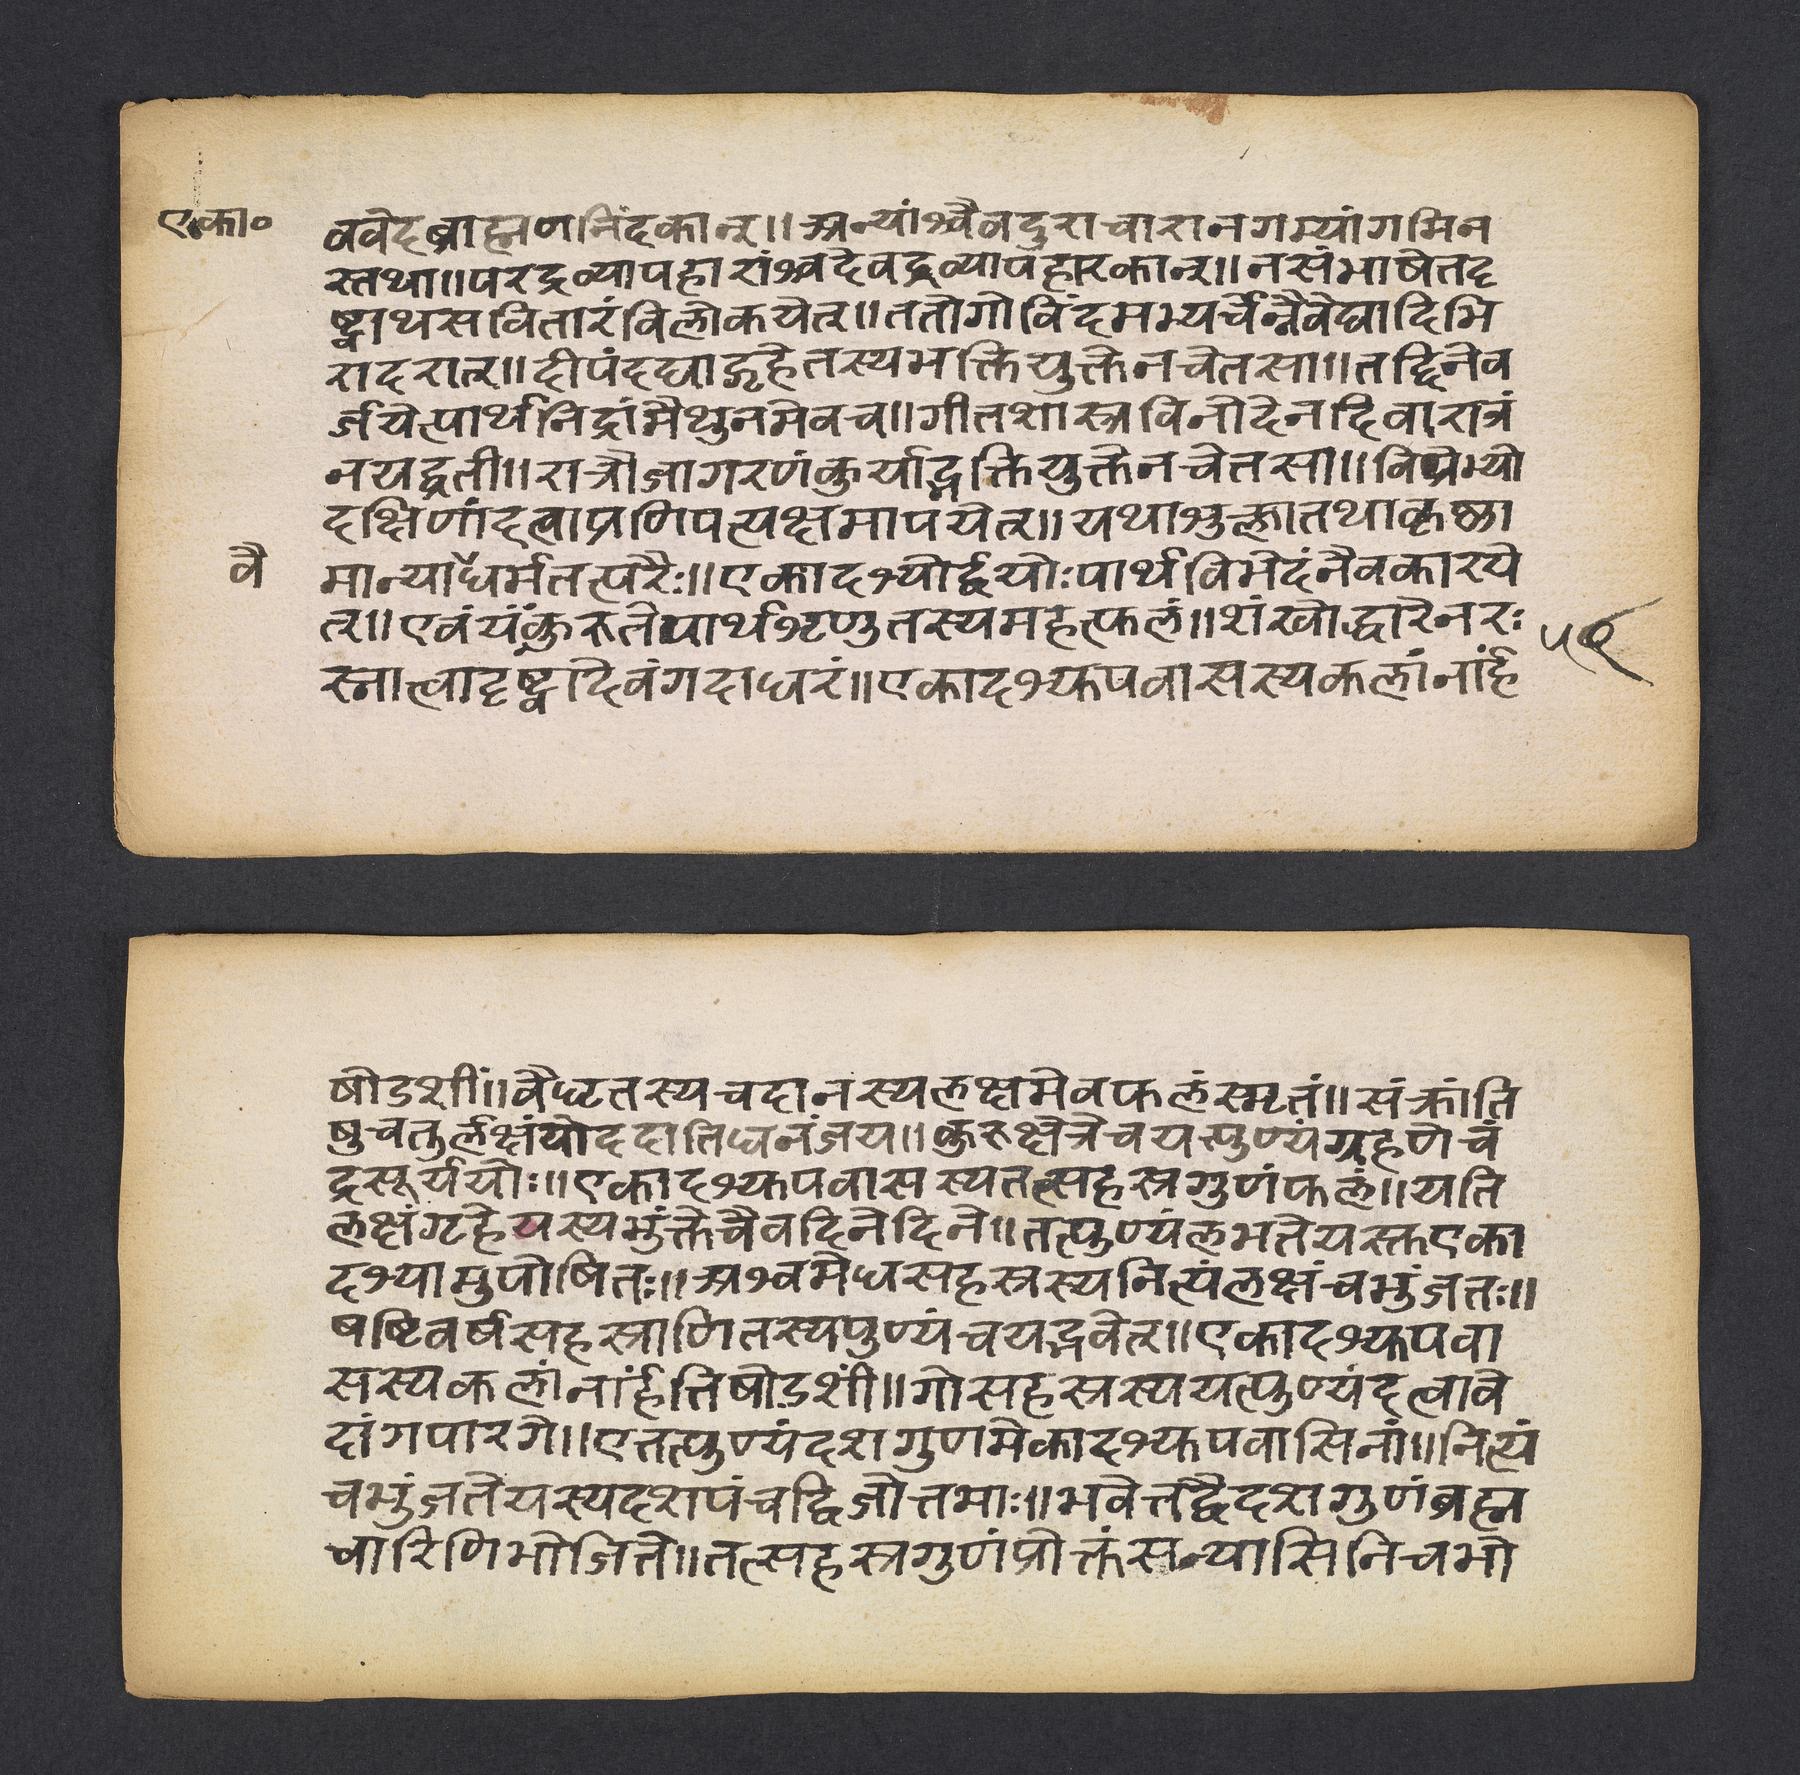 एका०
ववेदब्राह्मणनिंदकान्॥अन्यांश्चैवदुराचारानगम्यांगमिन
स्तथा॥परद्रव्यापहारांश्चदेवद्रव्यापहारकान्॥नसंभाषेतदृ
ष्ट्वाथसवितारंविलोकयेत्॥ततोगोविंदमभ्यर्चेन्नैवेद्यादिभि
रादरात्॥दीपंदद्याद्गृहेतस्यभक्तियुक्तेनचेतसा॥तद्दिनेव
र्जयेत्पार्थनिद्रांमैथुनमेवच॥गीतशास्त्रविनोदेनदिवारात्रं
नयद्व्रती॥रात्रौजागरणंकुर्याद्भक्तियुक्तेनचेतसा॥विप्रेभ्यो
दक्षिणांदत्वाप्रणिपत्यक्षमापयेत्॥यथाशुक्लातथाकृष्णा
वै
मान्याधर्मतत्परैः॥एकादश्योर्द्वयोःपार्थविभेदंनैवकारये
त्॥एवंयंकुरुतेपार्थशृणुतस्यमहत्फलं॥शंखोद्धारेनरः
५९
स्नात्वादृष्ट्वादेवंगदाधरं॥एकादश्युपवासस्यकलांनार्ह
षोडशीं॥वैधृतस्यचदानस्यलक्षमेवफलंस्मृतं॥संक्रांति
षुचतुर्लक्षंयोददातिधनंजय॥कुरुक्षेत्रेचयत्पुण्यंग्रहणेचं
द्रसूर्ययोः॥एकादश्युपवासस्यतत्सहस्रगुणंफलं॥यति
लक्षंगृहेयस्यभुंक्तेचैवदिनेदिने॥तत्पुण्यंलभतेयस्तुएका
दश्यामुपोषितः॥अश्वमेधसहस्रस्यनित्यंलक्षंचभुंजतः॥
षष्टिवर्षसहस्राणितस्यपुण्यंचयद्भवेत्॥एकादश्युपवा
सस्यकलांनार्हंतिषोडशीं॥गोसहस्रस्ययत्पुण्यंदत्वावे
दांगपारगे॥एतत्पुण्यंदशगुणमेकादश्युपवासिनां॥नित्यं
चभुंजतेयस्यदशपंचद्विजोत्तमाः॥भवेत्तद्वैदशगुणंब्रह्म
चारिणिभोजिते॥तत्सहस्रगुणंप्रोक्तंसन्यासिनिचभो